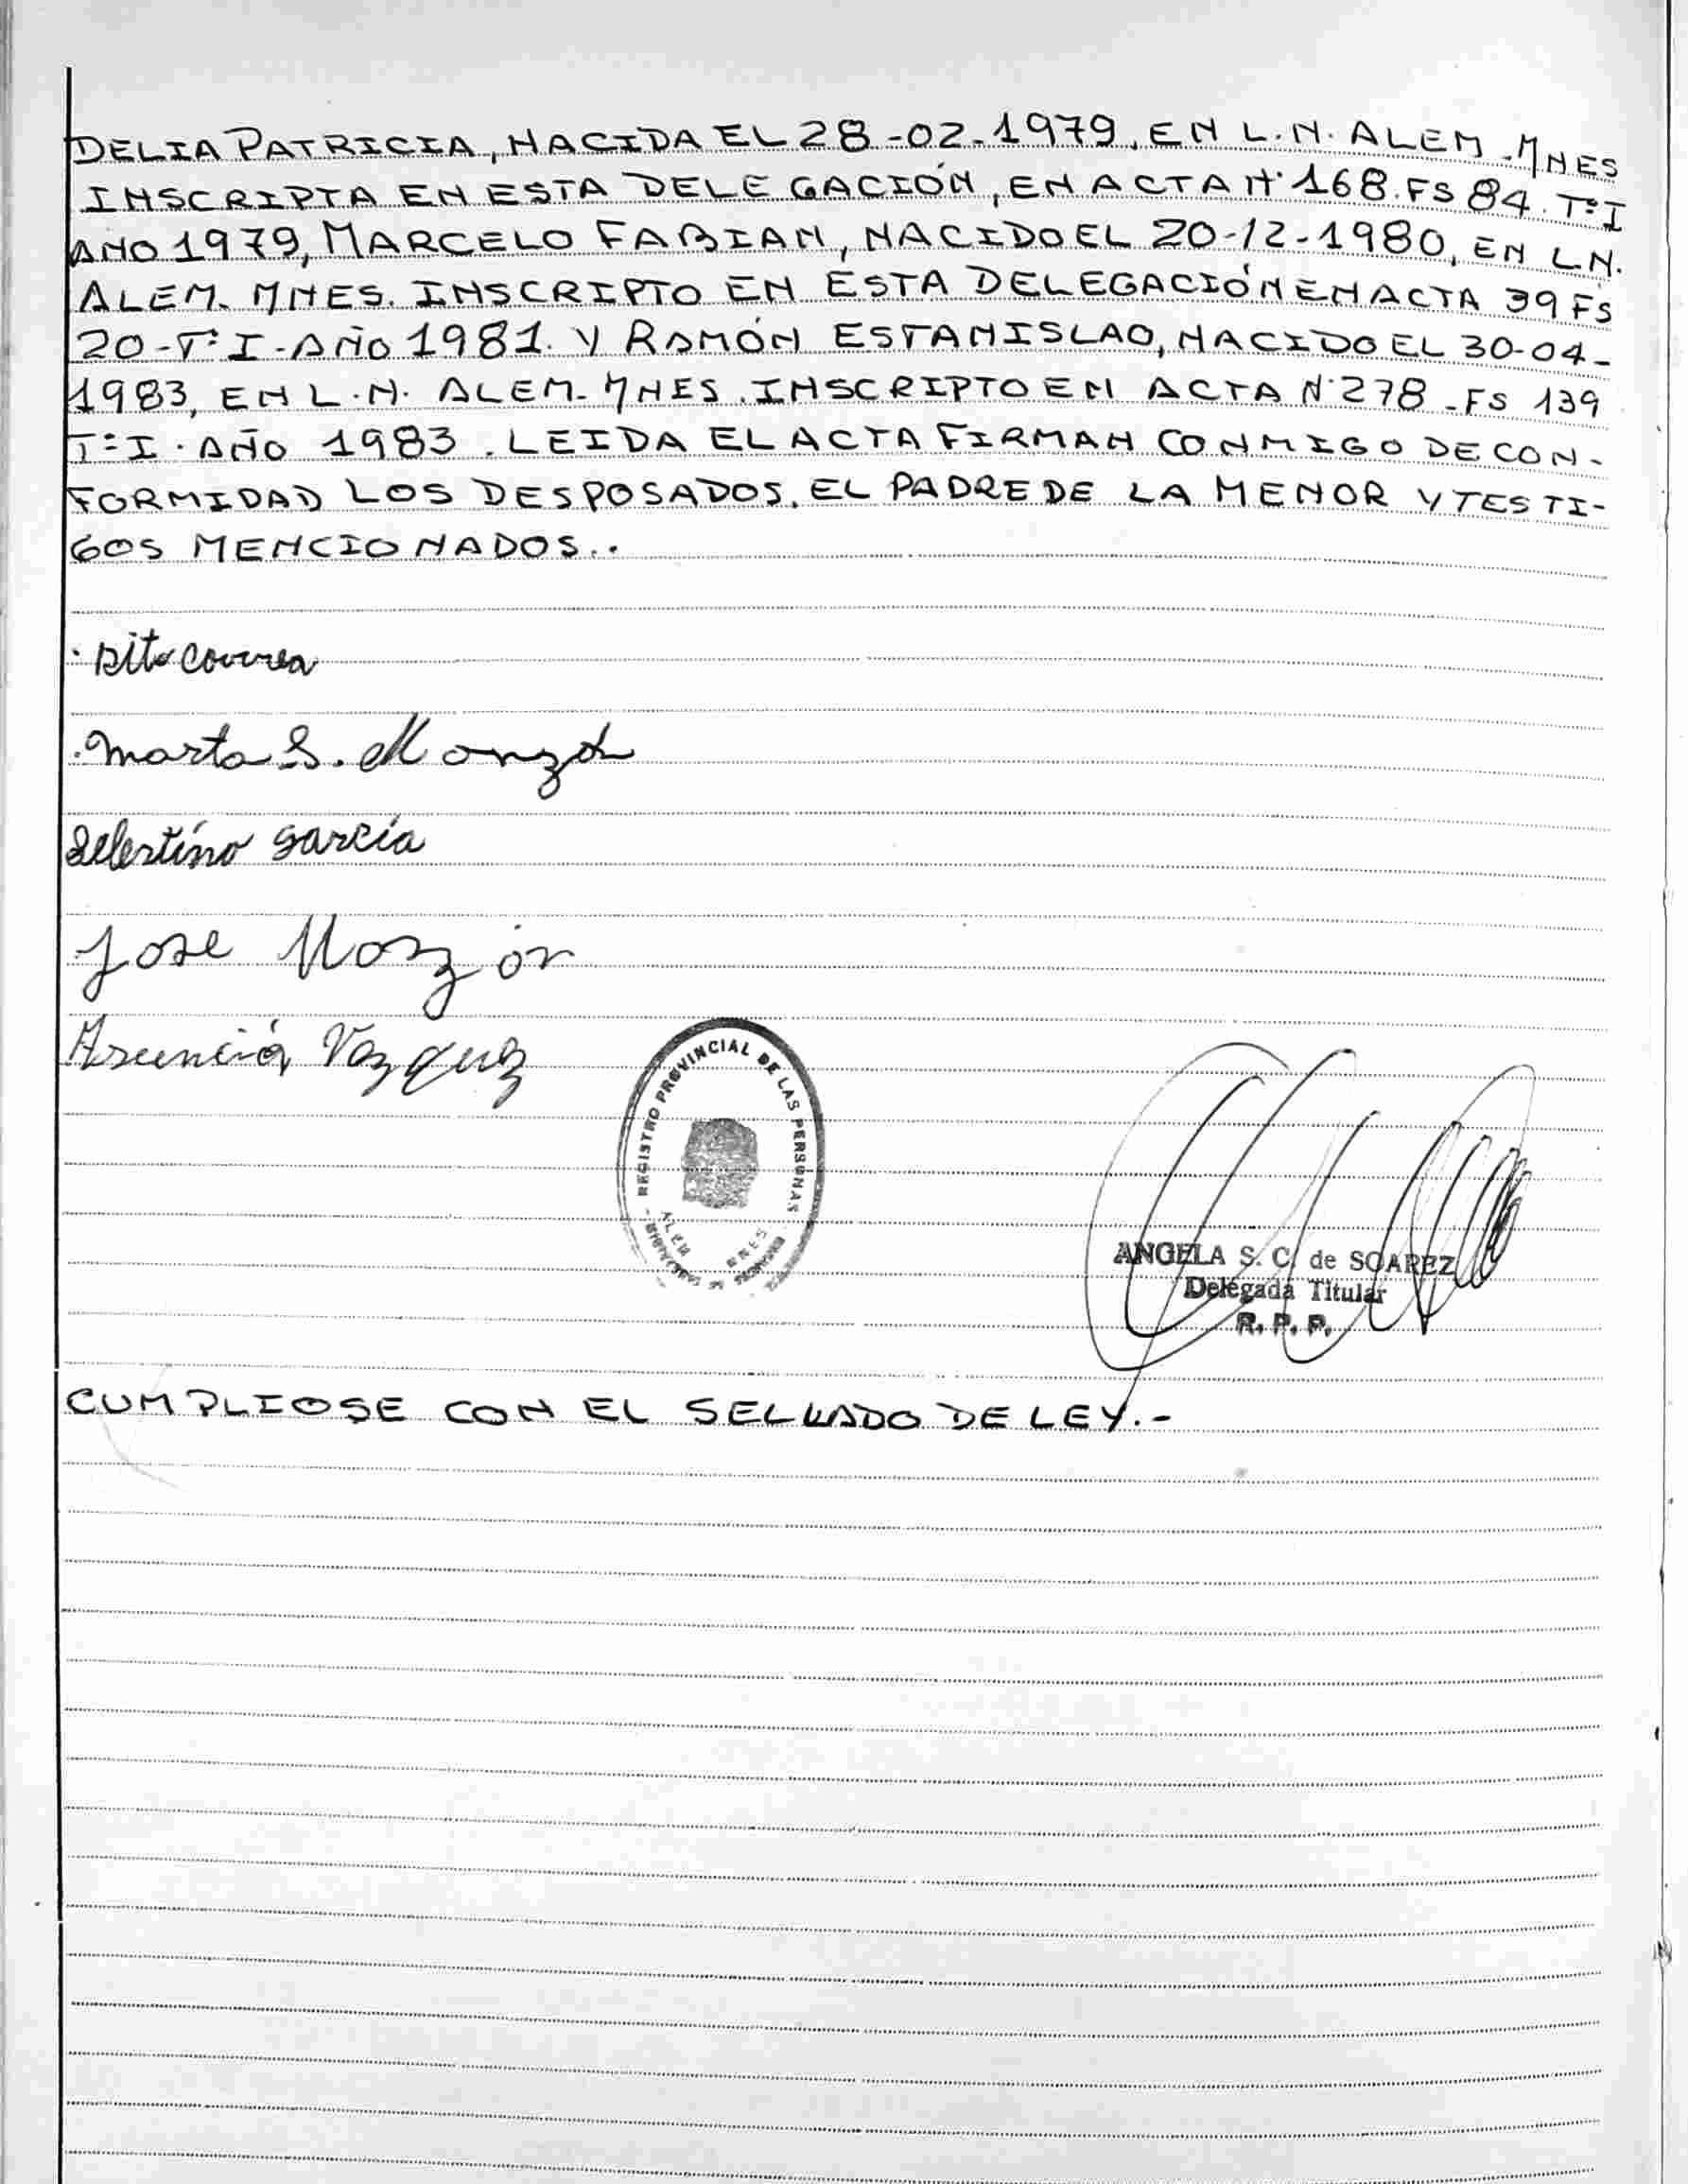 DELIA PATRICIA, NACIDA EL 28-02-1979, EN L.N. ALEM - MNES
INSCRIPTA EN ESTA DELEGACIÓN, EN ACTA N° 168. FS 84. T°I
AÑO 1979, MARCELO FABIAN, NACIDO EL 20-12-1980, EN L.N.
ALEM. MNES. INSCRIPTO EN ESTA DELEGACIÓN EN ACTA 39 FS
20-T°I-AÑO 1981. Y RAMÓN ESTANISLAO, NACIDO EL 30-04-
1983, EN L.N. ALEM- MNES. INSCRIPTO EN ACTA N° 278 - FS 139
T°I. AÑO 1983. LEIDA EL ACTA FIRMAN CONMIGO DE CON-
FORMIDAD LOS DESPOSADOS, EL PADRE DE LA MENOR Y TESTI-
GOS MENCIONADOS..
Correa
Marta S. Monzon
García
Jose Monzón
Asunción Vazquez
REGISTRO PROVINCIAL DE LAS PERSONAS
ALEM MNES
ANGELA S. C. de SOAREZ
Delegada Titular
R. P. P.
CUMPLIOSE CON EL SELLADO DE LEY.-